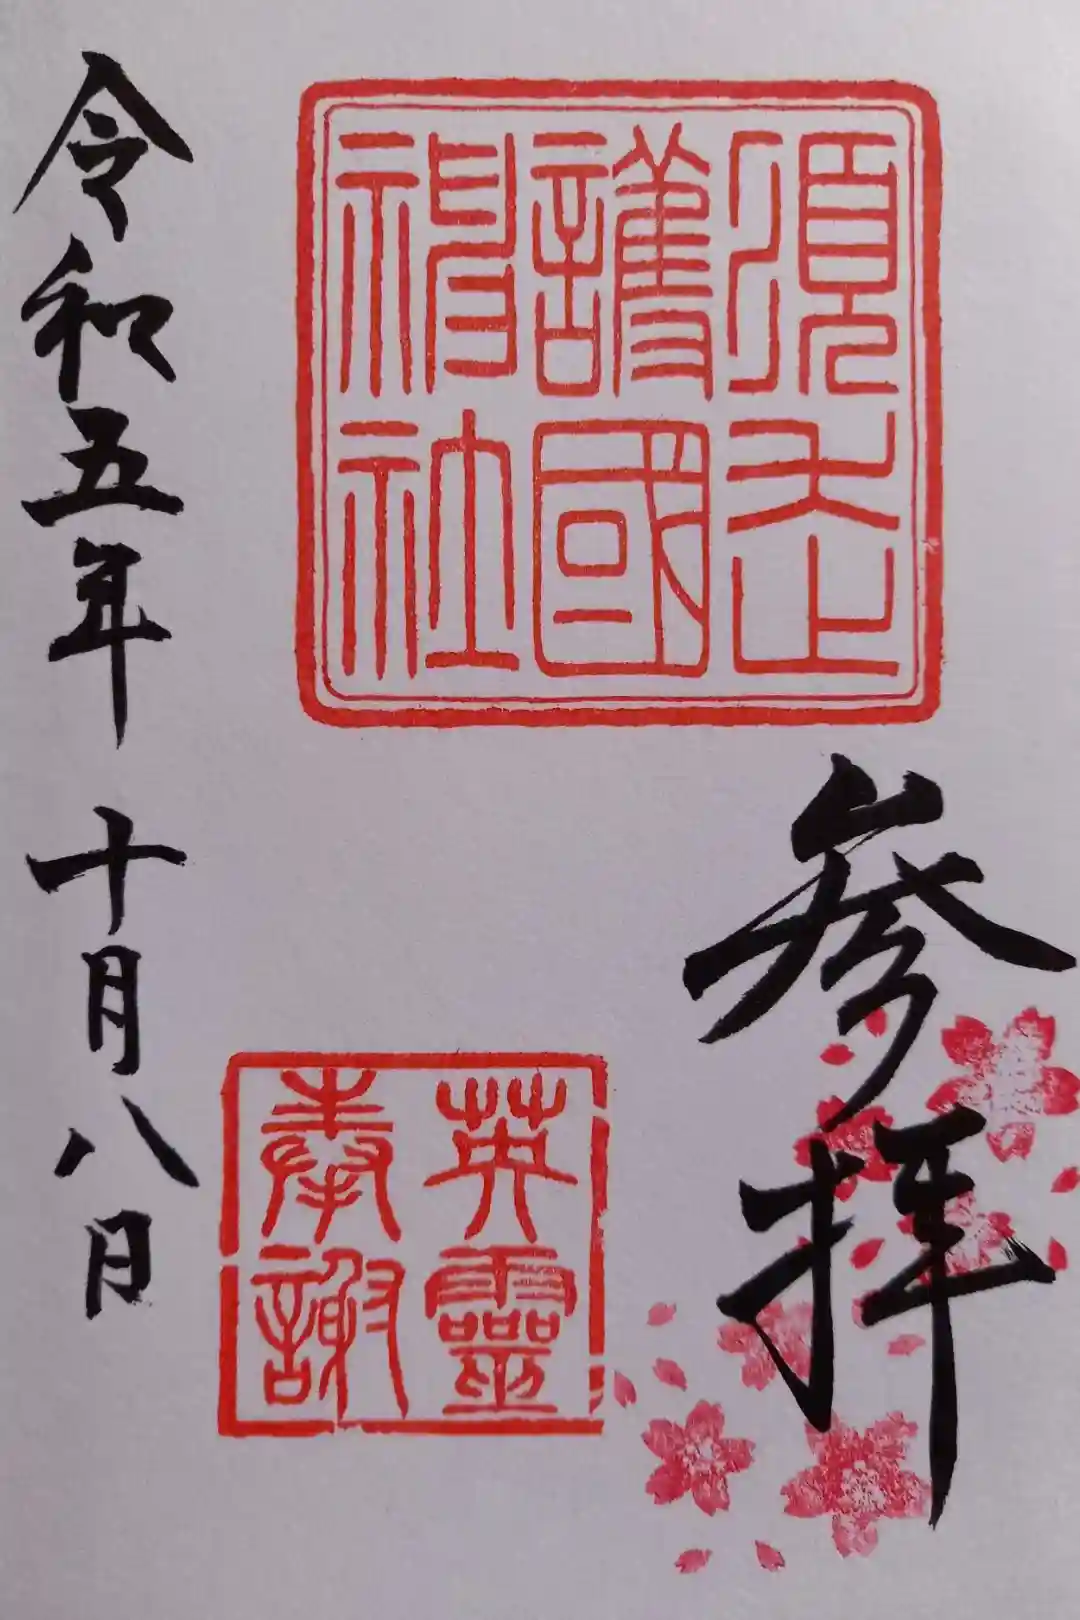 須走
護國
神社
参拝
英靈
奉謝
令和五年 十月八日